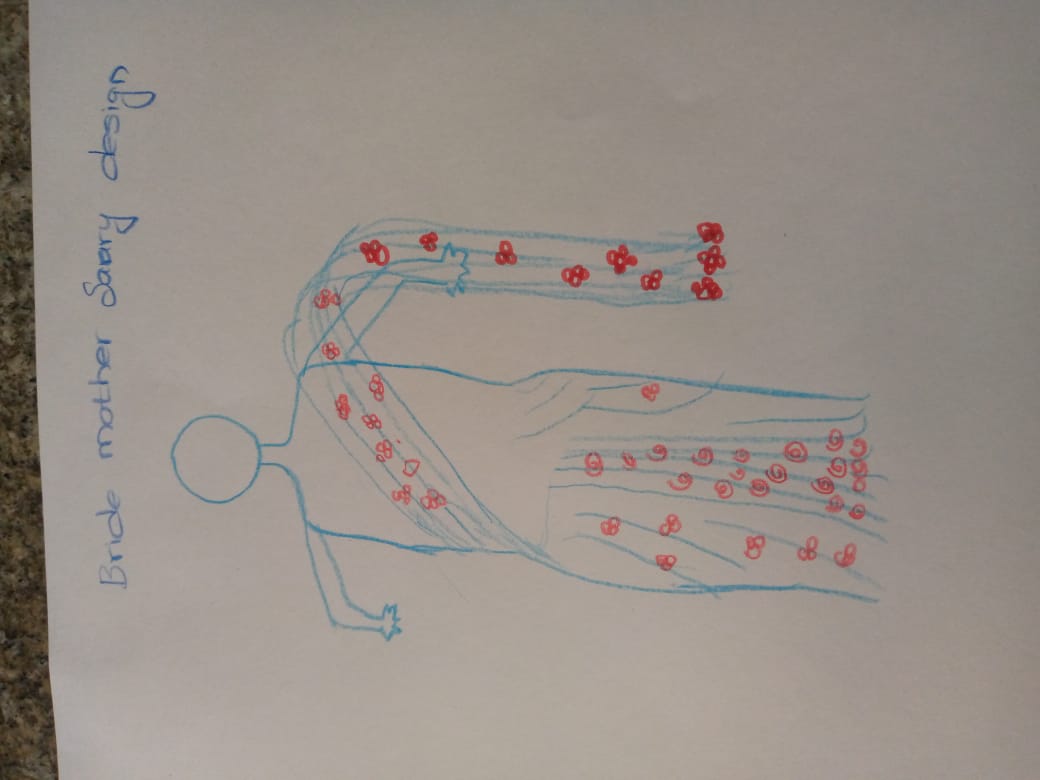 Bride mother Saary design